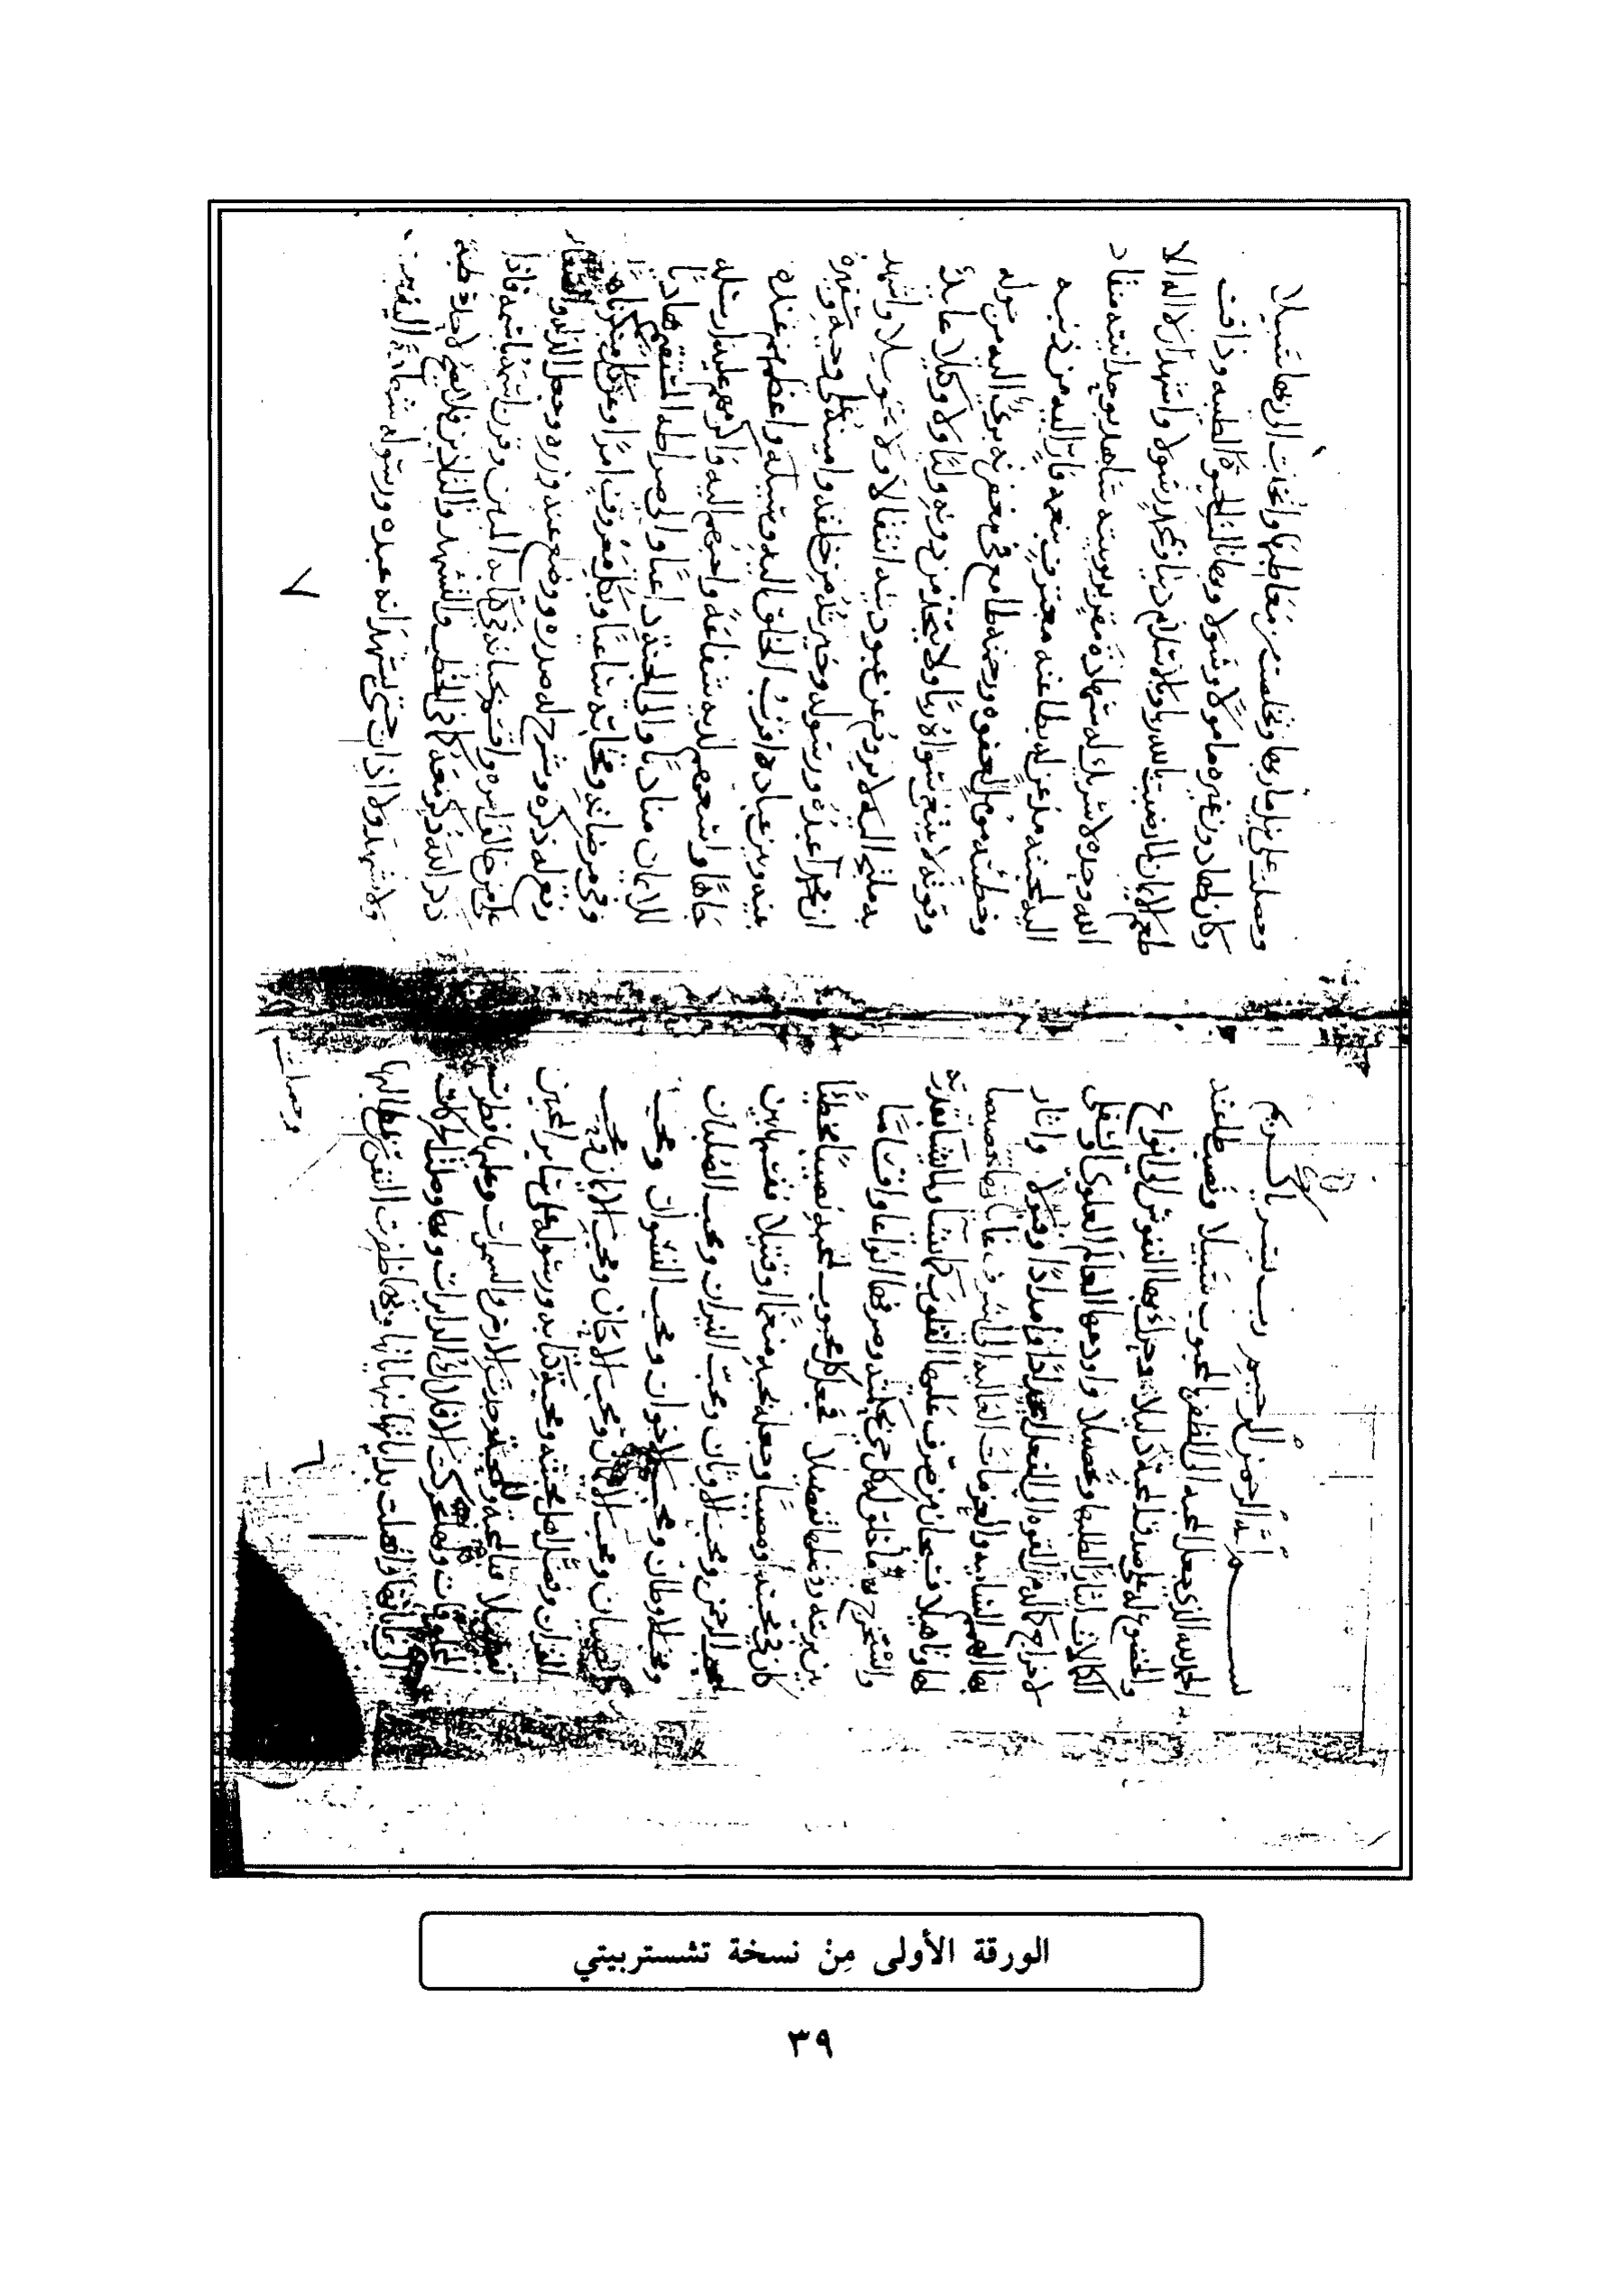 بسم الله الرحمن الرحيم رب يسر يا كريم
الحمد لله الذي جعل المحبه الى الظفر بالمحبوب سبيلا ونصب طاعته
والخضوع له على صدق المحبة دليلا وحرك بها النفوس الى انواع
الكمالات ايثارا لطلبها وتحصيلا واودعها العالم العلوى والسفلى
لاخراج كماله من القوه الى الفعل ايجادا وامدادا وقبولا واثار
بها الهمم الساميه والعزمات العاليه الى اشرف غاياتها تخصيصا
لها وتاهيلا فسبحان من صرف عليها القلوب كما يشا ولما يشا بقدرته
واستخرج بها ما خلق له كل حي بحكمته وصرفها انواعا واقساما
بين بريته وفصلها تفصيلا فجعل كل محبوب لمحبه نصيبا مخطئا
كان في محبته او مصيبا وجعله بمحبه منعما او قتيلا فقسمها بين
محب الرحمن ومحب الاوثان ومحب النيران ومحب الصلبان
ومحب الاوطان ومحب الاخوان ومحب النسوان ومحب
الصبيان ومحب الايمان ومحب الالحان ومحب
القران وفضل اهل محبته ومحبة كتابه ورسوله على ساير المحبين
تفضيلا فبالمحبه وللمحبة وجدت الارض والسموات وعليها فطرت
المخلوقات ولها تحركت الافلاك الدايرات وبها وصلت الحركات
الى غاياتها واتصلت بداياتها بنهاياتها وبها ظفرت النفوس بمطالبها
وحصلت
٦
وحصلت على نيل مآربها وتخلصت من معاطبها واتخذت الى ربها سبيلا
وكان لها دون غيره مامولا وسولا وبها نالت الحيوة الطيبه وذاقت
طعم الايمان لما رضيت بالله ربا وبالاسلام دينا وبمحمد رسولا واشهد ان لا اله الا
الله وحده لا شريك له شهادة مقر بربوبيته شاهد بوحدانيته منقاد
اليه لمحبته مذعن له بطاعته معترف بنعمته فار اليه من ذنبه
وخطيئته مومل لعفوه ورحمته طامع في مغفرته برئ اليه من حوله
وقوته لا يبتغي سواه ربا ولا يتخذ من دونه وليا ولا وكيلا عايذ
به ملتج اليه لا يروم عن عبوديته انتقالا ولا تحويلا واشهد
ان محمدا عبده ورسوله وخيرته من خلقه وامينه على وحيه وسفيره
بينه وبين عباده اقرب الخلق اليه وسيله واعظمهم عنده
جاها واسمعهم لديه شفاعة واحبهم اليه واكرمهم عليه ارسله
للايمان مناديا والى الجنة داعيا والى صراطه المستقيم هاديا
وفي مرضاته ومحابه ساعيا وبكل معروف امرا وعن كل منكر ناهيا
رفع له ذكره وشرح له صدره ووضع عنه وزره وجعل الذله والصغار
على من خالف امره واقسم بحياته في كتابه المبين وقرن اسمه باسمه فاذا
ذكر الله ذكر معه كما في الخطب والتشهد والتاذين فلا يصح لاحد خطبة
ولا تشهد ولا اذان حتى يشهد انه عبده ورسوله شهادة اليقين
٧
الورقة الأولى مِنْ نسخة تشستربيتي
٣٩